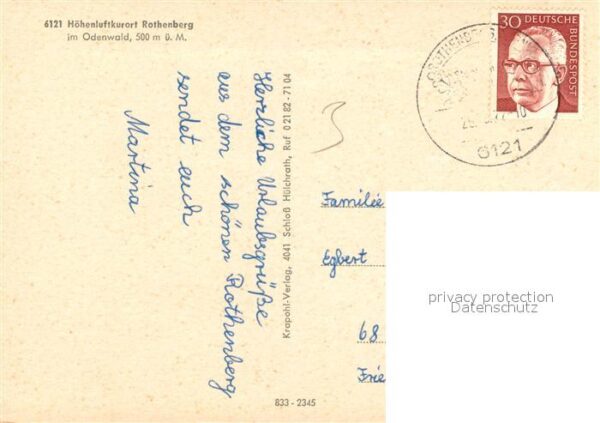 6121 Höhenluftkurort Rothenberg
im Odenwald, 500 m ü. M.
Herzliche Urlaubsgrüße
aus dem schönen Rothenberg
sendet euch
Martina
Krapohl-Verlag, 4041 Schloß Hülchrath, Ruf 0 21 82 - 71 04
833 - 2345
30 DEUTSCHE
BUNDESPOST
ROTHENBERG
6121
3
Familie
Egbert
68
Frie
privacy protection
Datenschutz